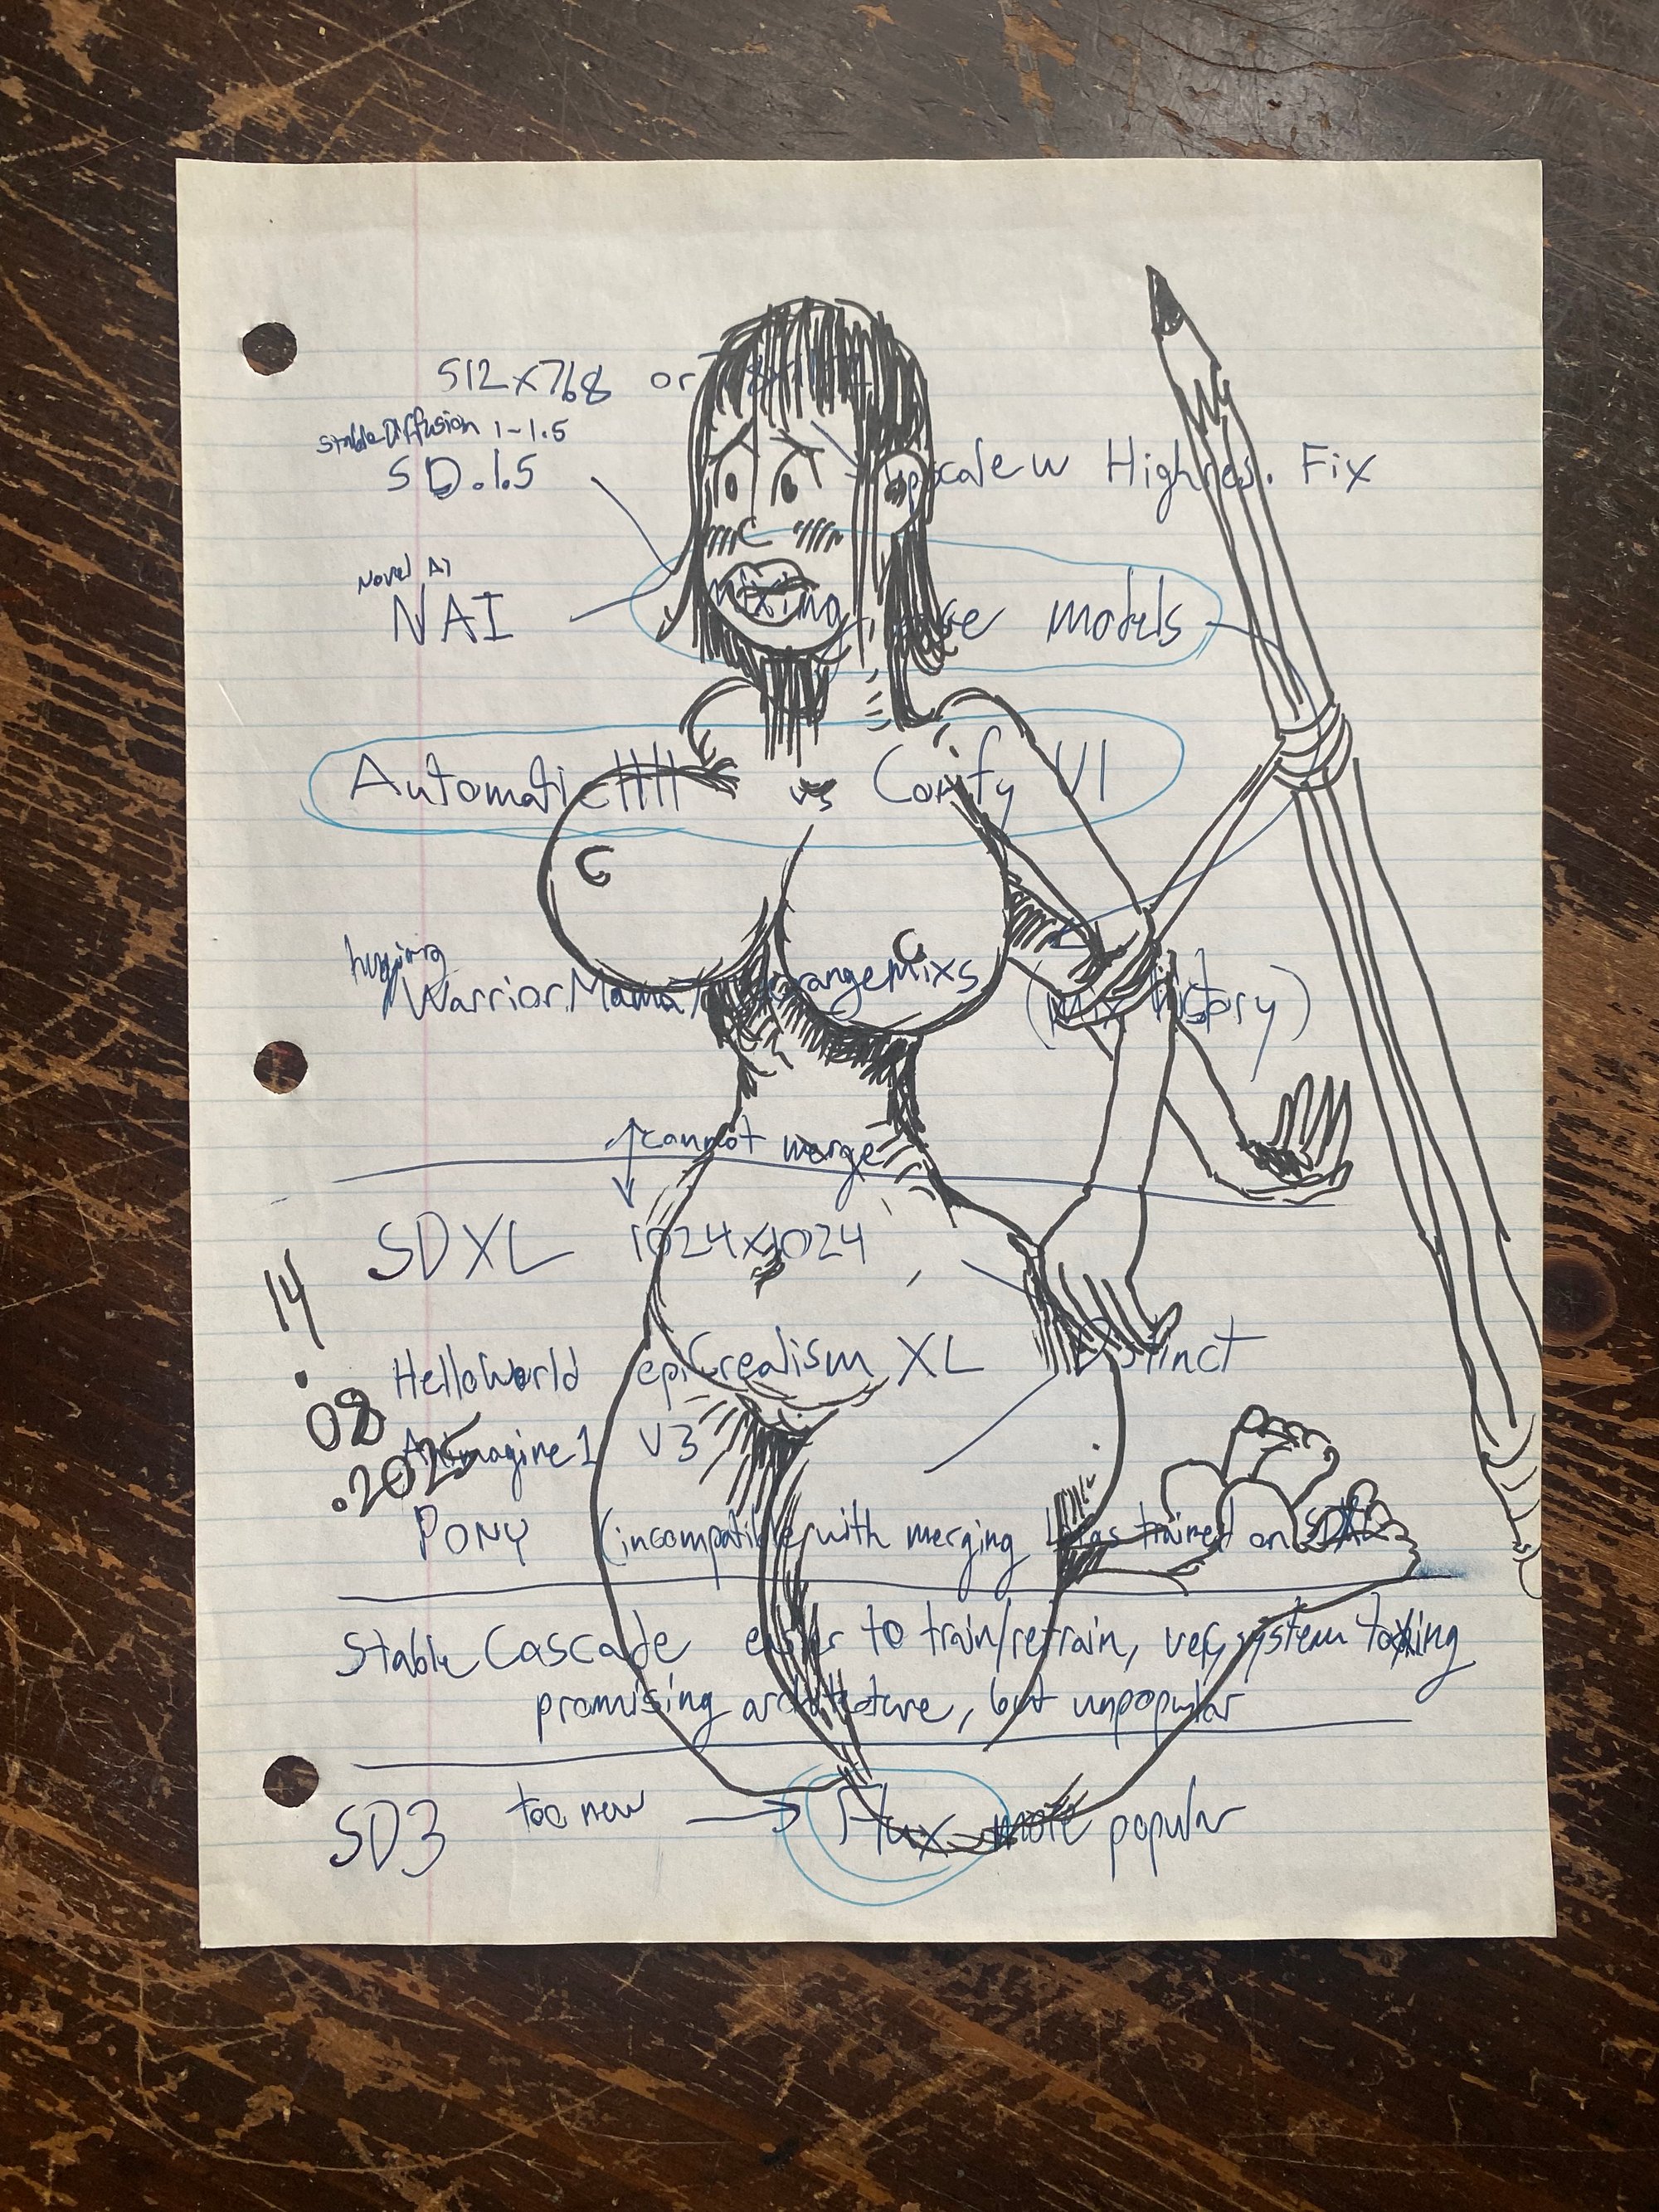 512x768 or
Stable Diffusion 1-1.5
SD.1.5
Upscale w Highres. Fix
Novel AI
NAI
mixing models
Automatic1111 vs Comfy UI
WarriorMama OrangeMixs (Mix history)
cannot merge
SDXL 1024x1024
14
.
08
.2025
HelloWorld epiCrealism XL Distinct
Animagine1 V3
PONY (incompatible with merging Loras trained on SDXL
Stable Cascade easier to train/retrain, very system taxing
promising architeture, but unpopular
SD3 too new Flux more popular